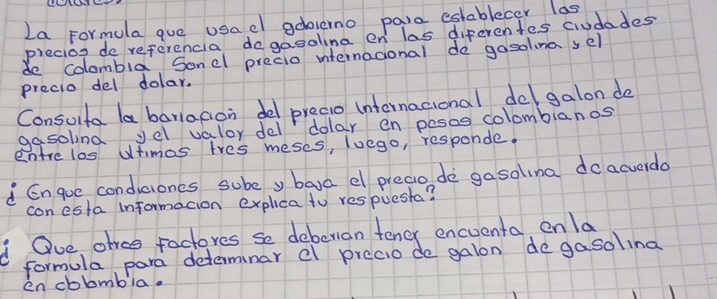 La Formula que usa el gobierno para establecer las
precios de referencia de gasolina en las diferentes ciudades
de Colombia Son el precio internacional de gasolina y el
precio del dolar.
Consulta la bariacion del precio internacional del galon de
gasolina y el valor del dolar en pesos colombianos
entre los ultimos tres meses, luego, responde.
¿ En que condiciones sube y baja el precio de gasolina de acuerdo
con esta informacion explica tu respuesta?
¿ Que otros factores se deberian tener encuenta en la
formula para determinar el precio de galon de gasolina
en colombia.